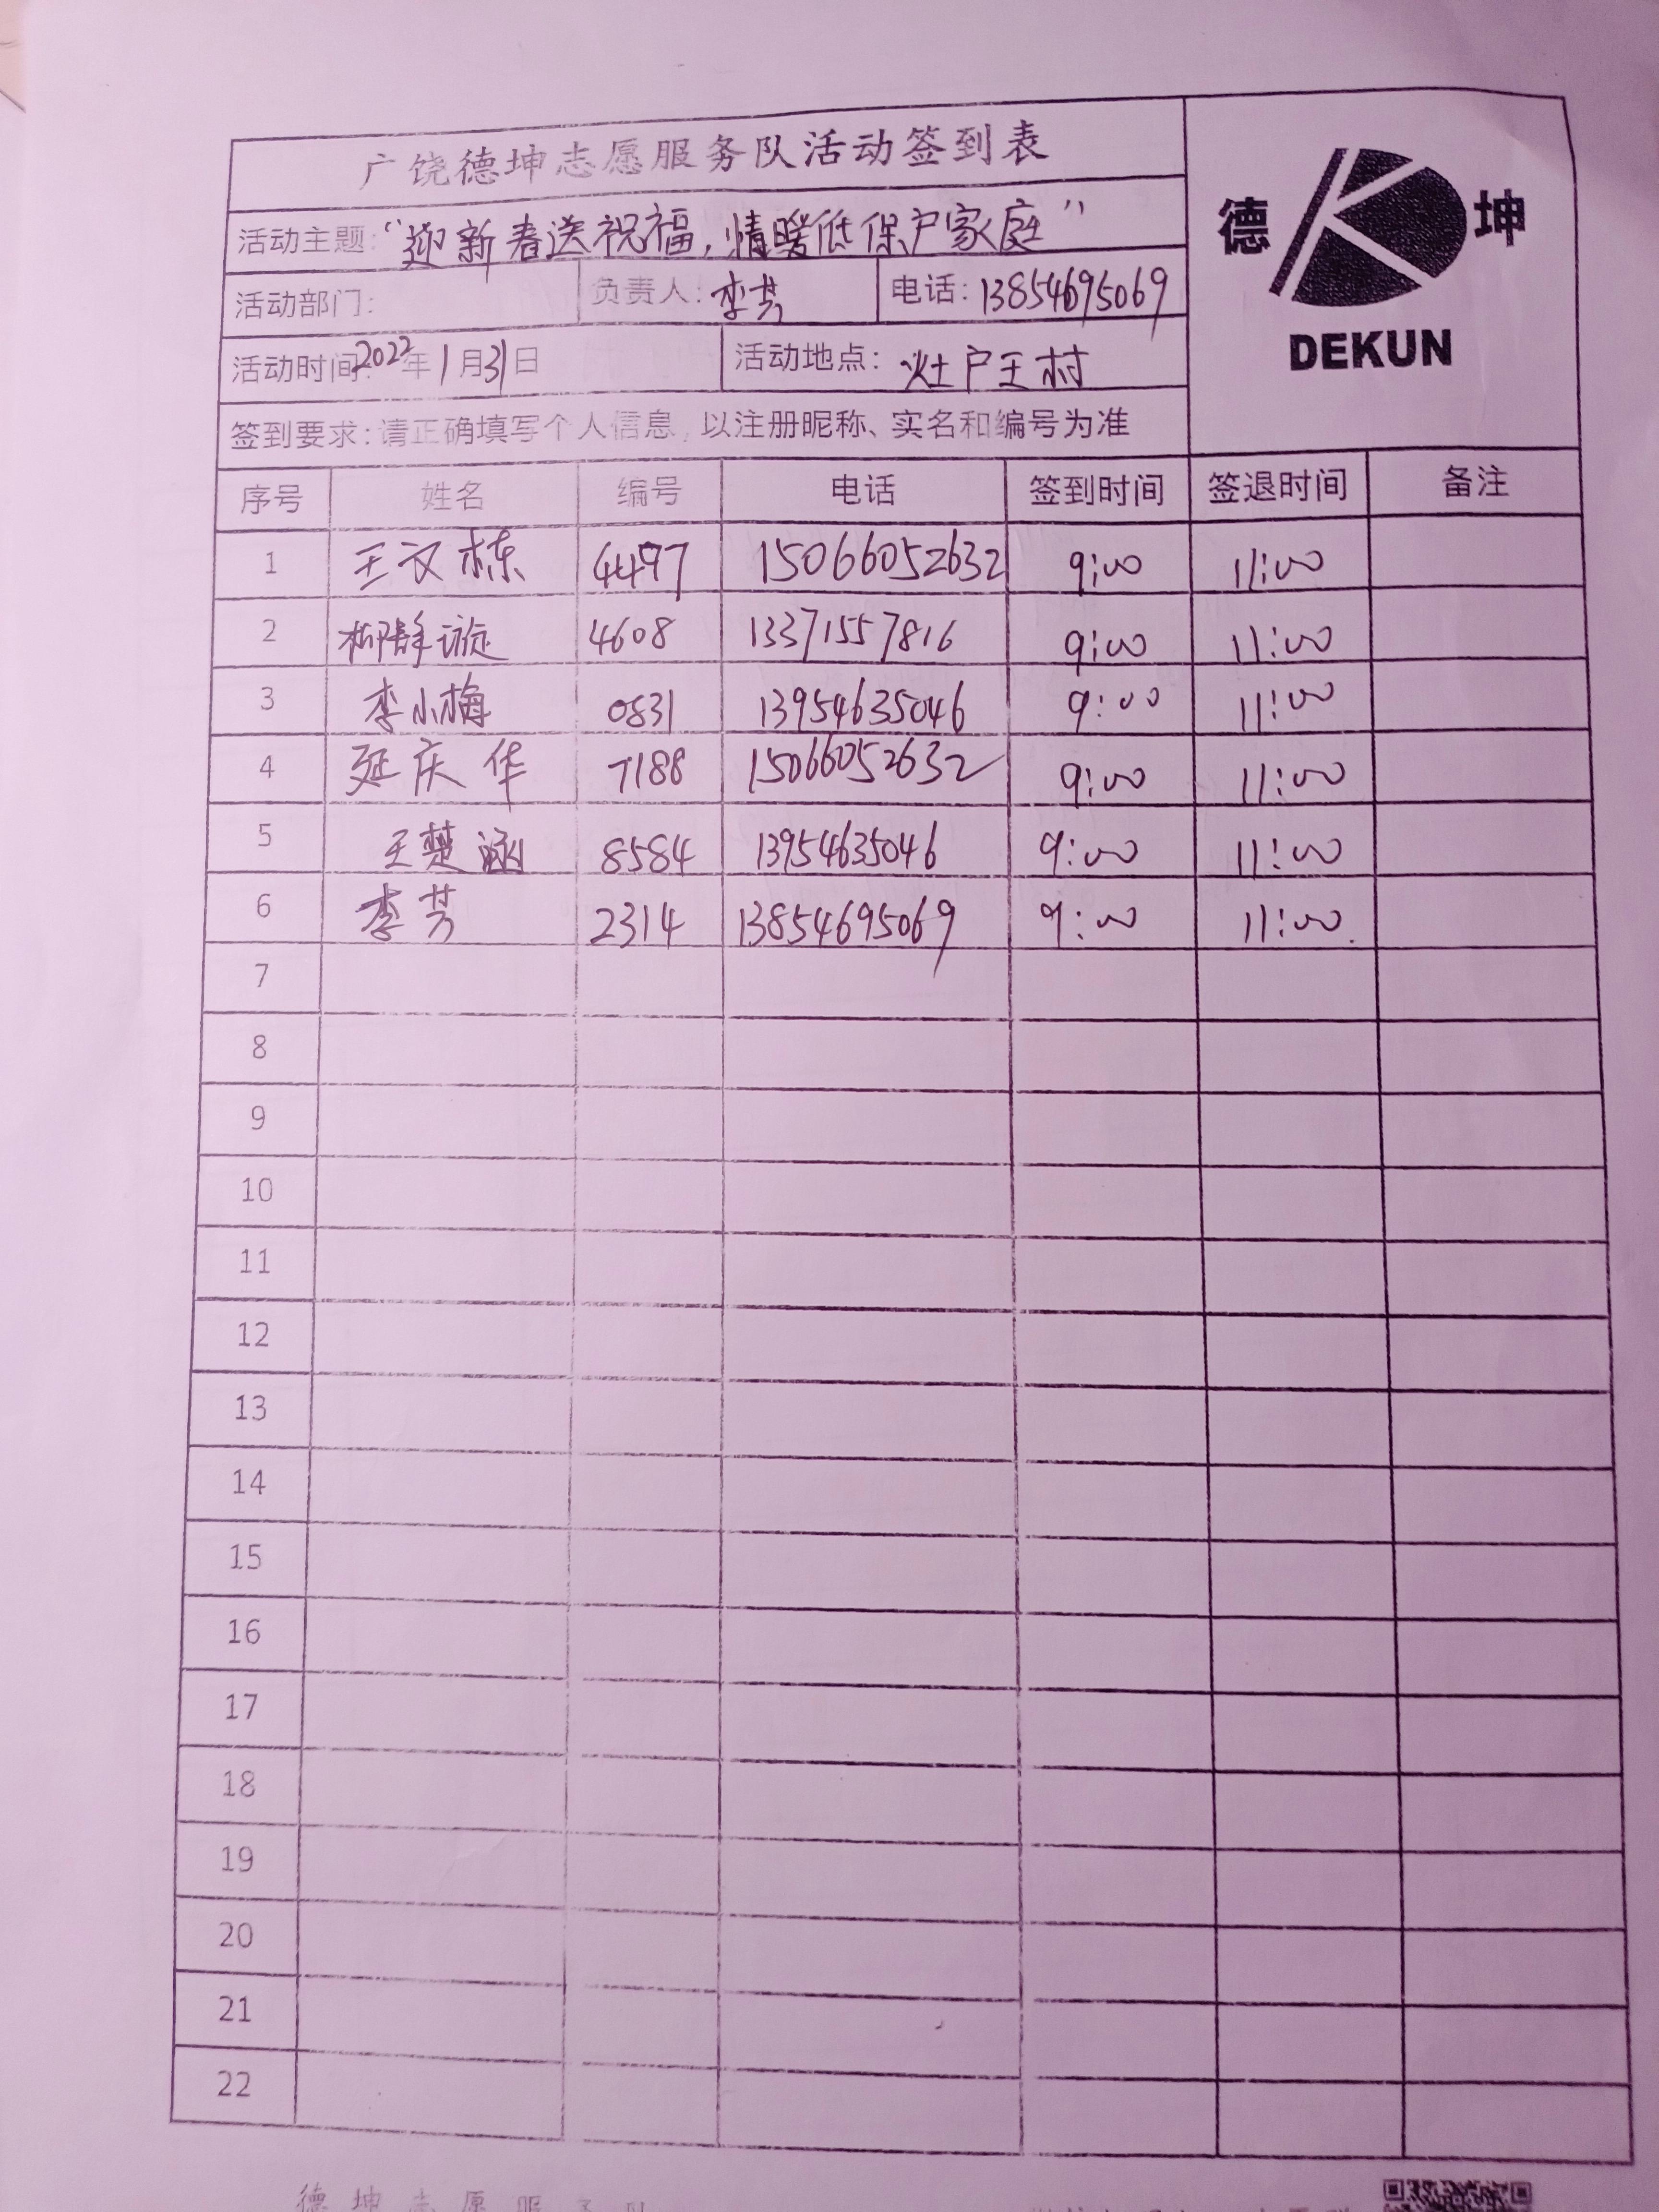 广饶德坤志愿服务队活动签到表
德 坤
DEKUN
活动主题:“迎新春送祝福,情暖低保户家庭”
活动部门: 负责人:李芳 电话:13854695069
活动时间:2022年1月31日 活动地点:灶户王村
签到要求:请正确填写个人信息,以注册昵称、实名和编号为准
序号 姓名 编号 电话 签到时间 签退时间 备注
1 王文栋 4497 15066052632 9:00 11:00
2 柳静 4608 13371557816 9:00 11:00
3 李小梅 0831 13954635046 9:00 11:00
4 延庆华 7188 15066052632 9:00 11:00
5 王楚涵 8584 13954635046 9:00 11:00
6 李芳 2314 13854695069 9:00 11:00
7
8
9
10
11
12
13
14
15
16
17
18
19
20
21
22
德坤志愿服务队